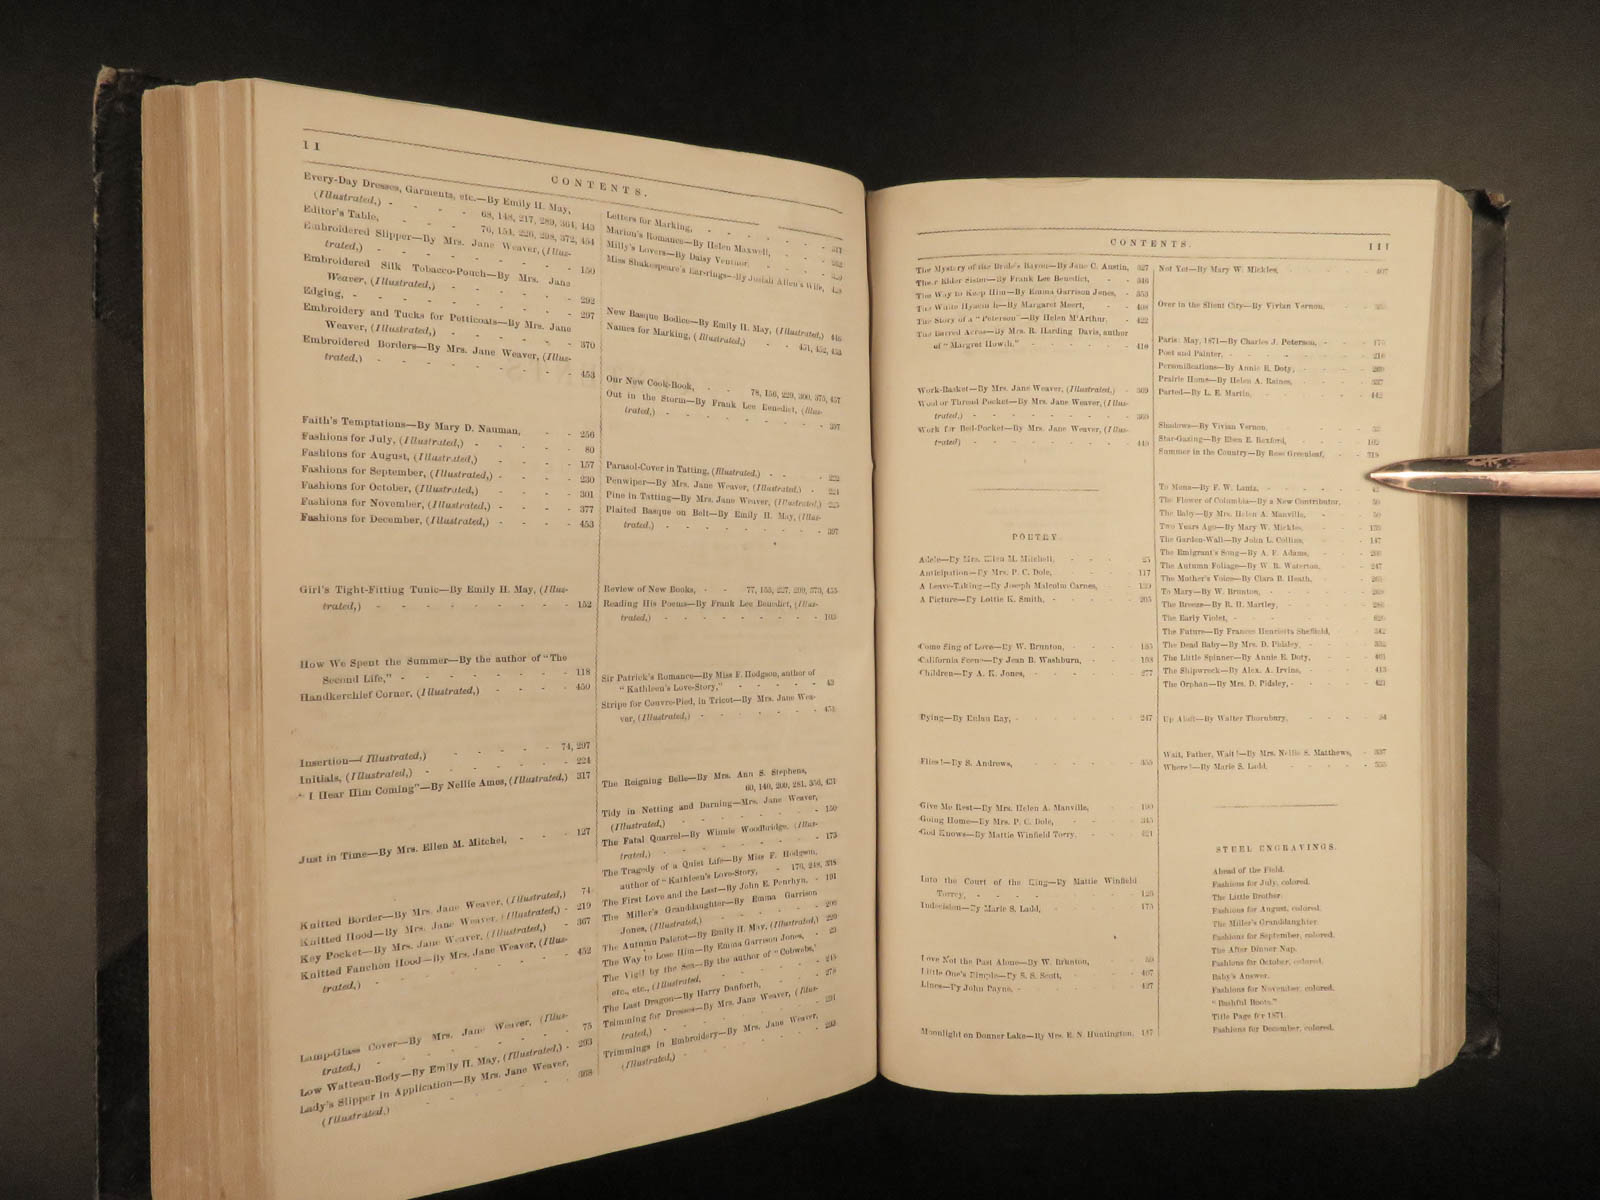 II
CONTENTS.
Every-Day Dresses, Garments, etc.—By Emily H. May,
(Illustrated,) - - - - 68, 148, 217, 289, 364, 443
Editor's Table, - - 76, 154, 226, 298, 372, 454
Embroidered Slipper—By Mrs. Jane Weaver, (Illus-
trated,) - - - - - - - 150
Embroidered Silk Tobacco-Pouch—By Mrs. Jane
Weaver, (Illustrated,) - - - - - 292
Edging, - - - - - - - - 297
Embroidery and Tucks for Petticoats—By Mrs. Jane
Weaver, (Illustrated,) - - - - - 370
Embroidered Borders—By Mrs. Jane Weaver, (Illus-
trated,) - - - - - - - 453
Faith's Temptations—By Mary D. Nauman, - - 256
Fashions for July, (Illustrated,) - - - - 80
Fashions for August, (Illustrated,) - - - - 157
Fashions for September, (Illustrated,) - - - - 230
Fashions for October, (Illustrated,) - - - - 301
Fashions for November, (Illustrated,) - - - - 377
Fashions for December, (Illustrated,) - - - - 453
Girl's Tight-Fitting Tunic—By Emily H. May, (Illus-
trated,) - - - - - - - 152
How We Spent the Summer—By the author of "The
Second Life," - - - - - - - 118
Handkerchief Corner, (Illustrated,) - - - - 450
Insertion—(Illustrated,) - - - - - 74, 297
Initials, (Illustrated,) - - - - - - 224
"I Hear Him Coming"—By Nellie Ames, (Illustrated,) 317
Just in Time—By Mrs. Ellen M. Mitchel, - - - 127
Knitted Border—By Mrs. Jane Weaver, (Illustrated,) 74
Knitted Hood—By Mrs. Jane Weaver, (Illustrated,) - 219
Key Pocket—By Mrs. Jane Weaver, (Illustrated,) - 367
Knitted Fanchon Hood—By Mrs. Jane Weaver, (Illus-
trated,) - - - - - - - 452
Lamp-Glass Cover—By Mrs. Jane Weaver, (Illus-
trated,) - - - - - - - 75
Low Watteau-Body—By Emily H. May, (Illustrated,) - 293
Lady's Slipper in Application—By Mrs. Jane Weaver,
(Illustrated,) - - - - - - 368
Letters for Marking, - - - - - -
Marion's Romance—By Helen Maxwell, - - -
Milly's Lovers—By Daisy Ventnor, - - -
Miss Shakespeare's Earrings—By Josiah Allen's Wife,
New Basque Bodice—By Emily H. May, (Illustrated,) 446
Names for Marking, (Illustrated,) - - 451, 452, 453
Our New Cook-Book, - - 78, 156, 229, 300, 375, 457
Out in the Storm—By Frank Lee Benedict, (Illus-
trated,) - - - - - - - 397
Parasol-Cover in Tatting, (Illustrated,) - - - 222
Penwiper—By Mrs. Jane Weaver, (Illustrated,) - 224
Pine in Tatting—By Mrs. Jane Weaver, (Illustrated,) 225
Plaited Basque on Belt—By Emily H. May, (Illus-
trated,) - - - - - - - 397
Review of New Books, - - 77, 155, 227, 299, 373, 455
Reading His Poems—By Frank Lee Benedict, (Illus-
trated,) - - - - - - - 103
Sir Patrick's Romance—By Miss F. Hodgson, author of
"Kathleen's Love-Story," - - - - - 43
Stripe for Couvre-Pied, in Tricot—By Mrs. Jane Wea-
ver, (Illustrated,) - - - - - - 451
The Reigning Belle—By Mrs. Ann S. Stephens,
60, 140, 209, 281, 356, 431
Tidy in Netting and Darning—Mrs. Jane Weaver,
(Illustrated,) - - - - - - 150
The Fatal Quarrel—By Winnie Woodbridge, (Illus-
trated,) - - - - - - - 173
The Tragedy of a Quiet Life—By Miss F. Hodgson,
author of "Kathleen's Love-Story, - 176, 248, 338
The First Love and the Last—By John E. Penrhyn, - 191
The Miller's Granddaughter—By Emma Garrison
Jones, (Illustrated,) - - - - -
The Autumn Paletot—By Emily H. May, (Illustrated,) 220
The Way to Lose Him—By Emma Garrison Jones, - 23
The Vigil by the Sea—By the author of "Cobwebs,"
etc., etc., (Illustrated, - - - - - 245
The Last Dragon—By Harry Danforth, - - 278
Trimming for Dresses—By Mrs. Jane Weaver, (Illus-
trated,) - - - - - - - 291
Trimmings in Embroidery—By Mrs. Jane Weaver,
(Illustrated,) - - - - - - 293
CONTENTS.
III
The Mystery of the Bride's Bayou—By Jane C. Austin, 327
Their Elder Sister—By Frank Lee Benedict, - - 346
The Way to Keep Him—By Emma Garrison Jones, - 353
The White Hyacinth—By Margaret Meert, - - 408
The Story of a "Peterson"—By Helen M'Arthur, - 422
The Barred Acres—By Mrs. R. Harding Davis, author
of "Margret Howth," - - - - - - 410
Work-Basket—By Mrs. Jane Weaver, (Illustrated,) - 369
Wool or Thread Pocket—By Mrs. Jane Weaver, (Illus-
trated,) - - - - - - - 369
Work for Bed-Pocket—By Mrs. Jane Weaver, (Illus-
trated) - - - - - - - 449
POETRY.
Adele—By Mrs. Ellen M. Mitchell, - - - 25
Anticipation—By Mrs. P. C. Dole, - - - 117
A Leave-Taking—By Joseph Malcolm Carnes, - - 139
A Picture—By Lottie K. Smith, - - - - 205
Come Sing of Love—By W. Brunton, - - -
California Scene—By Jean B. Washburn, - - 198
Children—By A. K. Jones, - - - - - 277
Dying—By Eulan Ray, - - - - - - 247
Flies!—By S. Andrews, - - - - - 355
Give Me Rest—By Mrs. Helen A. Manville, - - 190
Going Home—By Mrs. P. C. Dole, - - - 345
God Knows—By Mattie Winfield Torry, - - - 421
Into the Court of the King—By Mattie Winfield
Torrey, - - - - - - - 126
Indecision—By Marie S. Ladd, - - - - 175
Love Not the Past Alone—By W. Brunton, - - 59
Little One's Dimple—By S. S. Scott, - - - 407
Lines—By John Payne, - - - - - 427
Moonlight on Donner Lake—By Mrs. E. N. Huntington, 147
Not Yet—By Mary W. Mickles, - - - - 407
Over in the Silent City—By Vivian Vernon, - -
Paris: May, 1871—By Charles J. Peterson, - - - 175
Poet and Painter, - - - - - - 216
Personifications—By Annie E. Doty, - - - - 269
Prairie Home—By Helen A. Raines, - - - - 337
Parted—By L. E. Martin, - - - - - 442
Shadows—By Vivian Vernon, - - - - 52
Star-Gazing—By Eben E. Rexford, - - - - 102
Summer in the Country—By Rose Greenleaf, - - 319
To Mona—By F. W. Lantz, - - - - - 42
The Flower of Columbia—By a New Contributor, 50
The Baby—By Mrs. Helen A. Manville, - - - 59
Two Years Ago—By Mary W. Mickles, - - - 139
The Garden-Wall—By John L. Collins, - - - 147
The Emigrant's Song—By A. F. Adams, - - - 208
The Autumn Foliage—By W. R. Waterton, - - 247
The Mother's Voice—By Clara B. Heath, - - - 265
To Mary—By W. Brunton, - - - - - 269
The Breeze—By R. H. Martley, - - - - 286
The Early Violet, - - - - - -
The Future—By Frances Henrietta Sheffield, - 342
The Dead Baby—By Mrs. D. Pidsley, - - - 352
The Little Spinner—By Annie E. Doty, - - - 401
The Shipwreck—By Alex. A. Irvine, - - - - 413
The Orphan—By Mrs. D. Pidsley, - - - - 421
Up Aloft—By Walter Thornbury, - - - - 34
Wait, Father, Wait!—By Mrs. Nellie S. Matthews, - 337
Where!—By Marie S. Ladd, - - - - - 355
STEEL ENGRAVINGS.
Ahead of the Field.
Fashions for July, colored.
The Little Brother.
Fashions for August, colored.
The Miller's Granddaughter
Fashions for September, colored.
The After Dinner Nap.
Fashions for October, colored.
Baby's Answer.
Fashions for November, colored.
"Bashful Boots."
Title Page for 1871.
Fashions for December, colored.